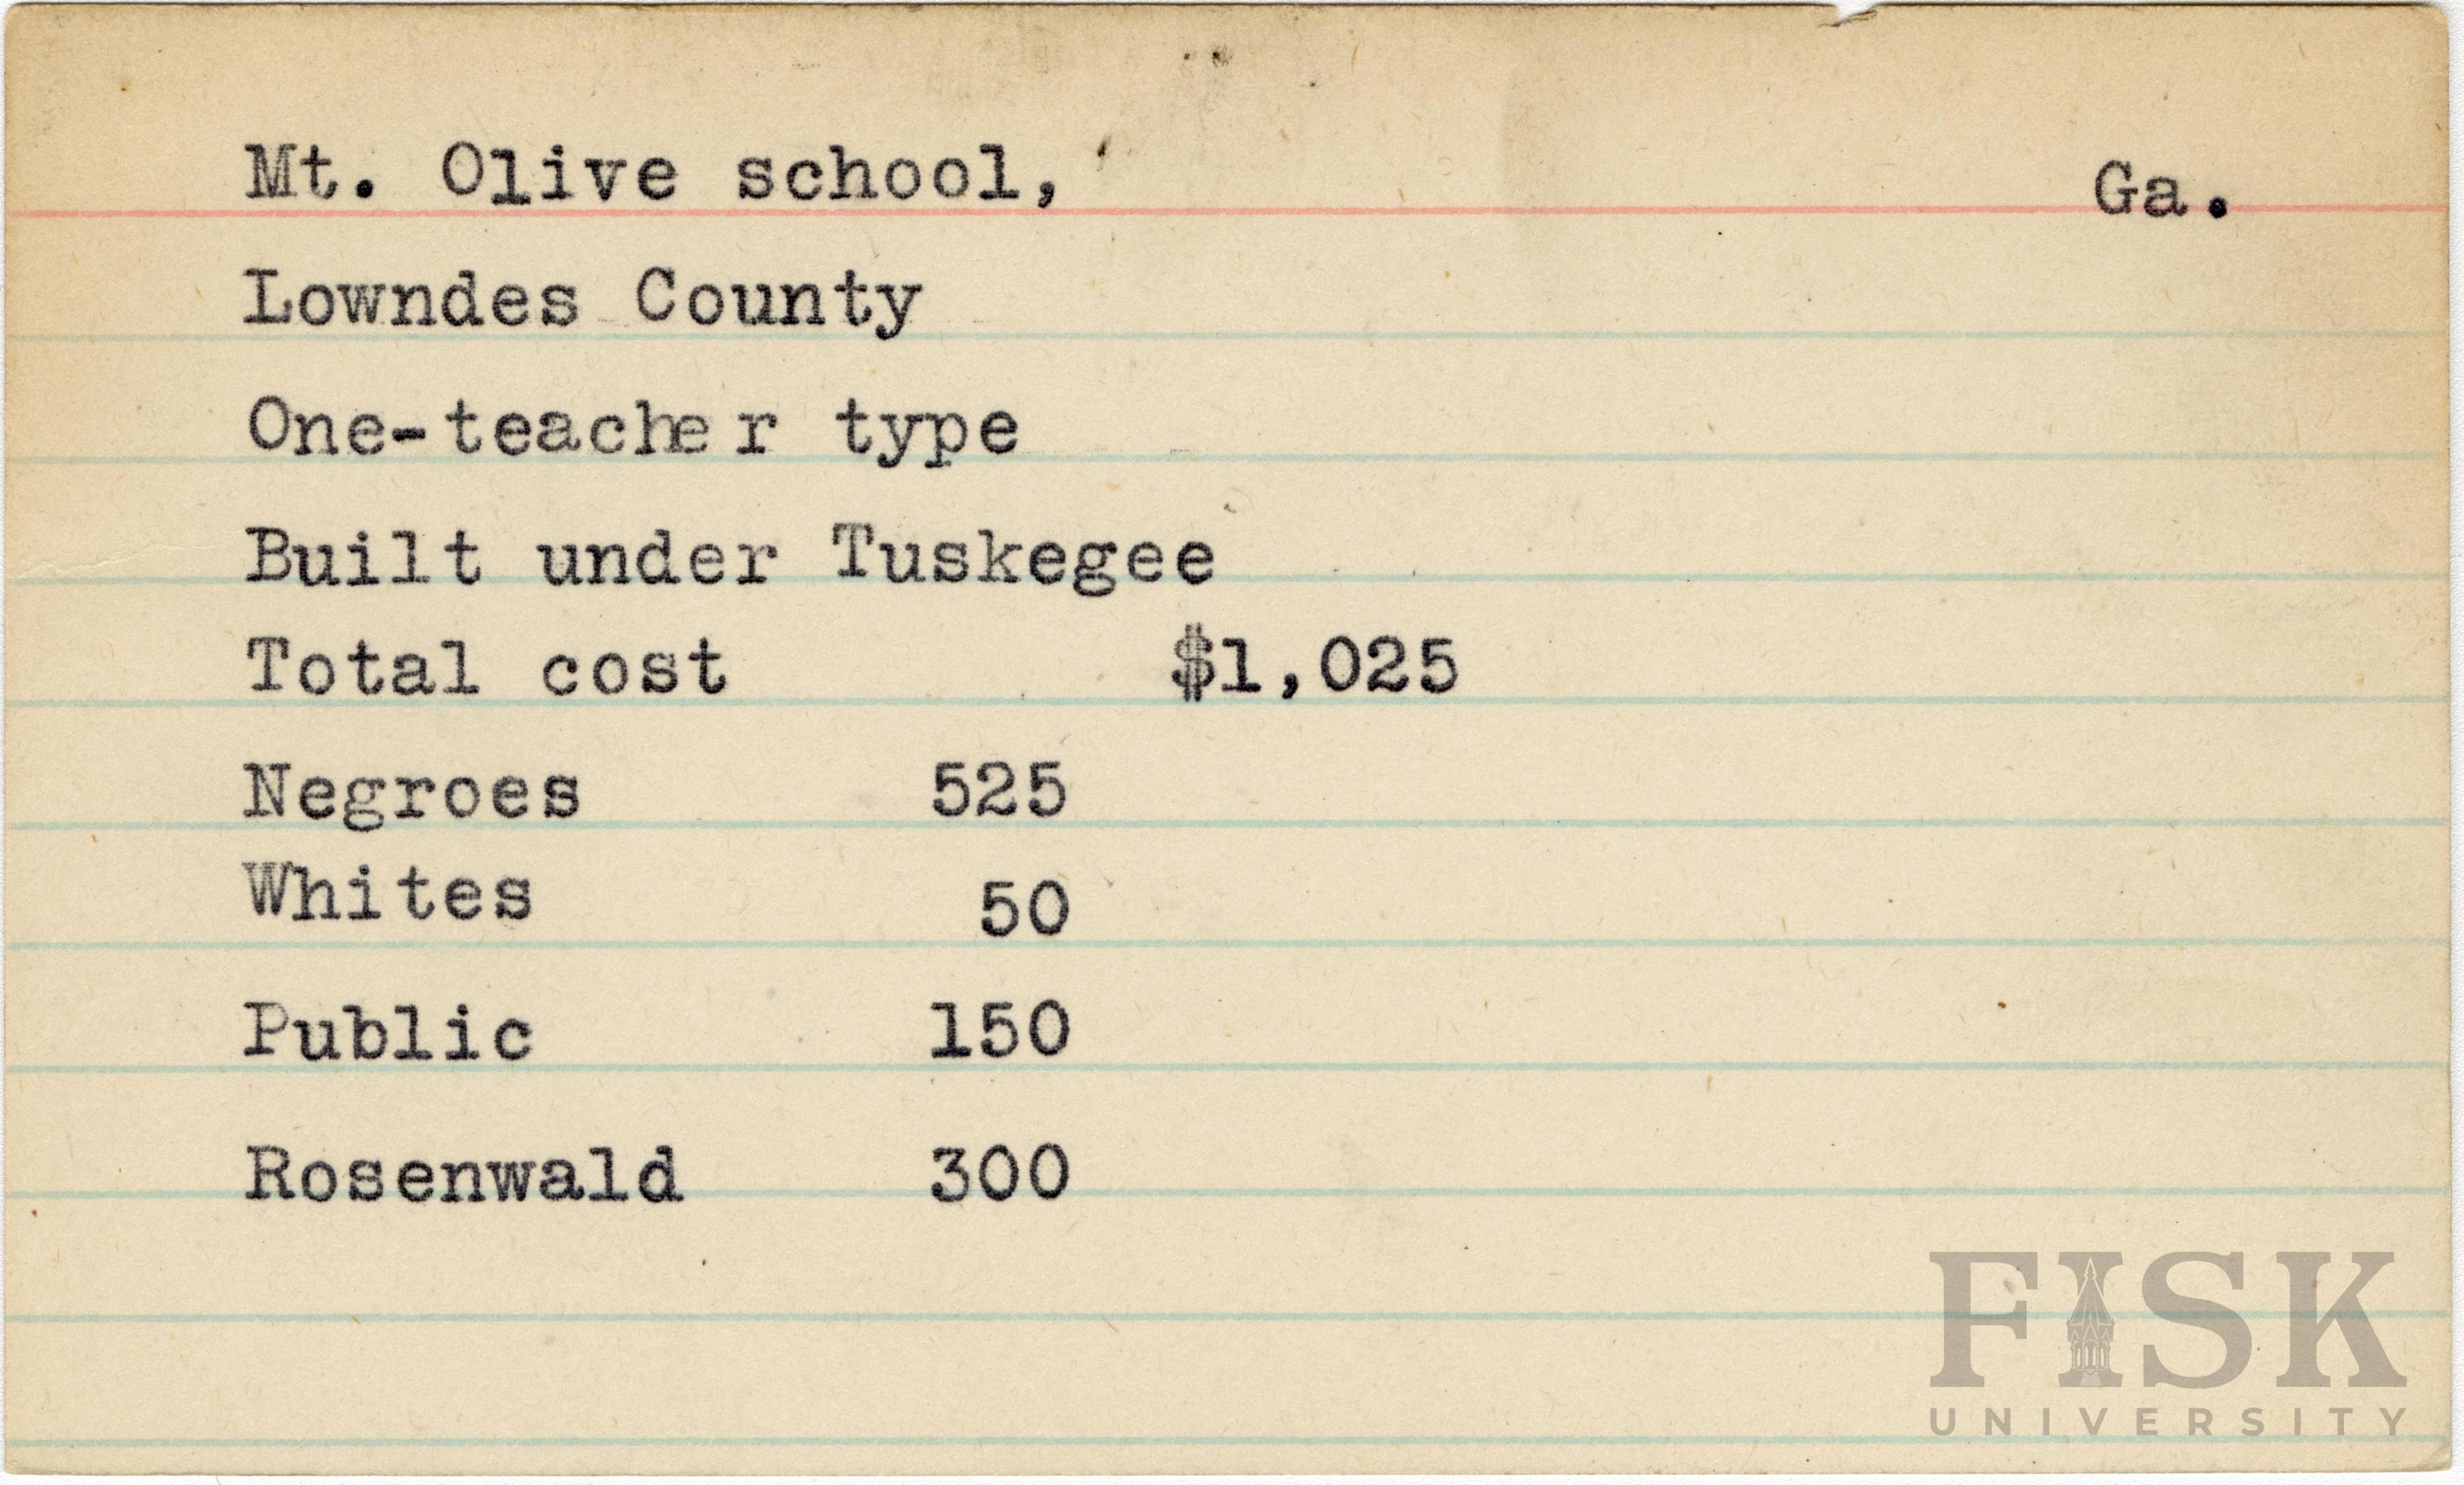 Mt. Olive school, Ga.
Lowndes County
One-teacher type
Built under Tuskegee
Total cost $1,025
Negroes 525
Whites 50
Public 150
Rosenwald 300
FISK
UNIVERSITY